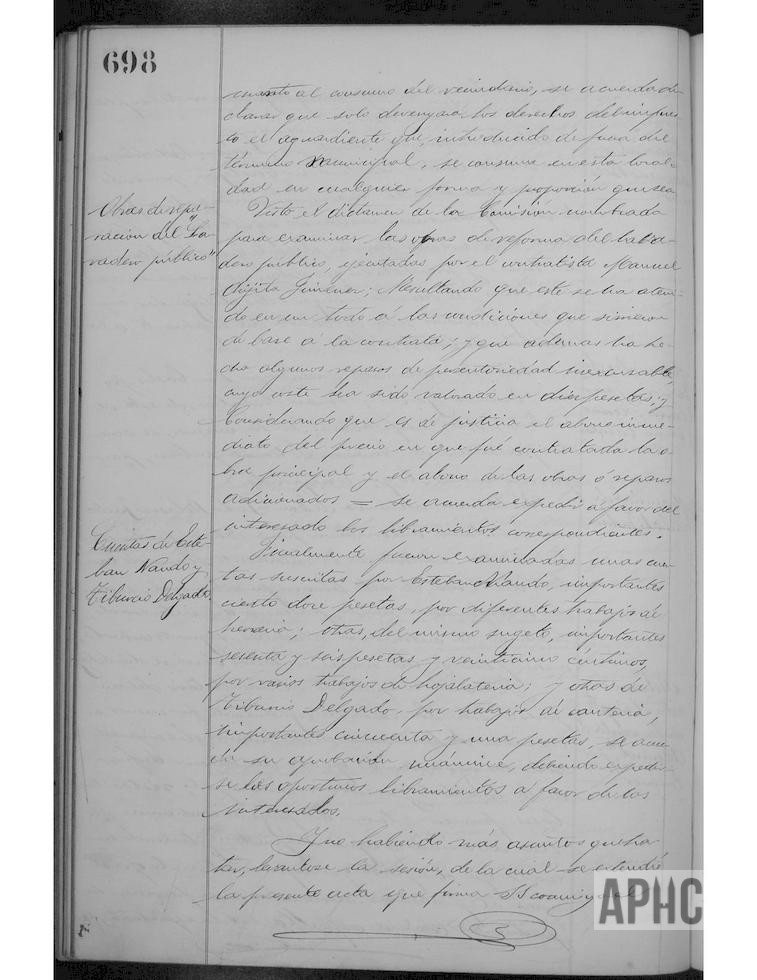 698
cuanto al consumo del vecindario, se acuerda de-
clarar que solo devengará los derechos del impues-
to el aguardiente que, introducido de fuera del
término municipal, se consuma en esta locali-
dad en cualquier forma y proporción que sea
Obras de repa-
ración del "La-
vadero público"
Visto el dictamen de la Comisión nombrada
para examinar las obras de reforma del lava-
dero público, ejecutadas por el contratista Manuel
Jiménez; Resultando que este se ha ateni-
do en un todo á las condiciones que sirvieron
de base a la contrata; y que además ha he-
cho algunos reparos de perentoriedad inexcusable,
cuyo coste ha sido valorado en diez pesetas; y
Considerando que es de justicia el abono inme-
diato del precio en que fué contratada la o-
bra principal y el abono de las obras ó reparos
adicionados = se acuerda expedir á favor del
interesado los libramientos correspondientes.
Cuentas de Este-
ban Nando y
Tiburcio Delgado.
Finalmente fueron examinadas unas cuen-
tas suscritas por Esteban Nando, importantes
ciento doce pesetas, por diferentes trabajos de
herrería; otras, del mismo sugeto, importantes
sesenta y seis pesetas y veinticinco céntimos,
por varios trabajos de hojalatería; y otras de
Tiburcio Delgado, por trabajos de cantería,
importantes cincuenta y una pesetas, se acuer-
da su aprobación unánime, debiendo expedir-
se los oportunos libramientos a favor de los
interesados.
Y no habiendo más asuntos que tra-
tar, levantose la sesión, de la cual se extendió
la presente acta que firma
APHC